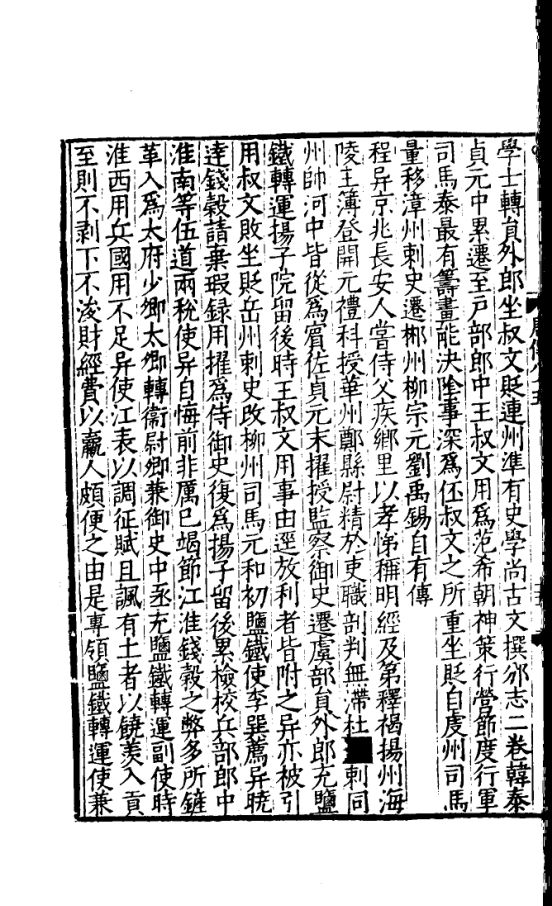 學士轉員外郎坐叔文貶連州準有史學尚古文撰邠志二卷韓泰
貞元中累遷至戸部郎中王叔文用爲范希朝神策行營節度行軍
司馬泰最有籌畫能決陰事深爲伾叔文之所重坐貶自虔州司馬
量移漳州刺史遷郴州柳宗元劉禹錫自有傳
程异京兆長安人嘗侍父疾鄉里以孝悌稱明經及第釋褐揚州海
陵主簿登開元禮科授華州鄭縣尉精於吏職剖判無滯杜刺同
州帥河中皆從爲賓佐貞元末擢授監察御史遷虞部員外郎充鹽
鐵轉運揚子院留後時王叔文用事由逕放利者皆附之异亦被引
用叔文敗坐貶岳州刺史改郴州司馬元和初鹽鐵使李巽薦异曉
達錢穀請棄瑕録用擢爲侍御史復爲揚子留後累檢校兵部郎中
淮南等伍道兩稅使异自悔前非厲已竭節江淮錢穀之弊多所鏟
革入爲太府少卿太卿轉衞尉卿兼御史中丞充鹽鐵轉運副使時
淮西用兵國用不足异使江表以調征賦且諷有土者以饒羨入貢
至則不剥下不浚財經費以贏人頗便之由是專領鹽鐵轉運使兼